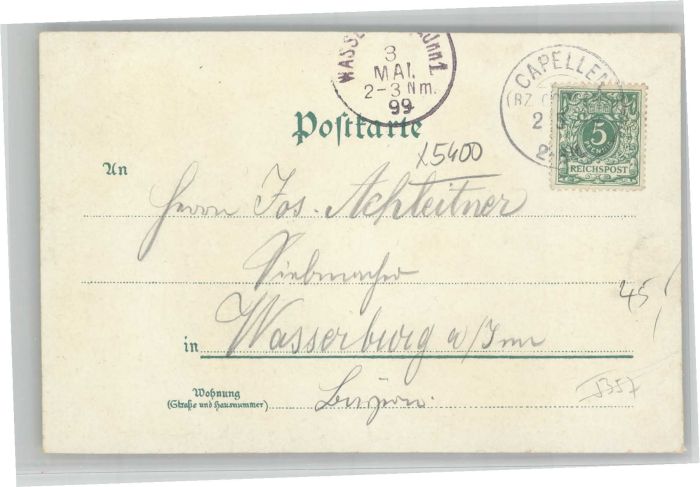 WASS
3
MAI.
2-3 Nm.
99
CAPELLEN
(BZ.
2
5
REICHSPOST
Postkarte
x5400
An
Herrn Jos. Achleitner
Siebmacher
45,
in Wasserburg a/Inn
Wohnung
(Straße und Hausnummer)
Bayern.
5357